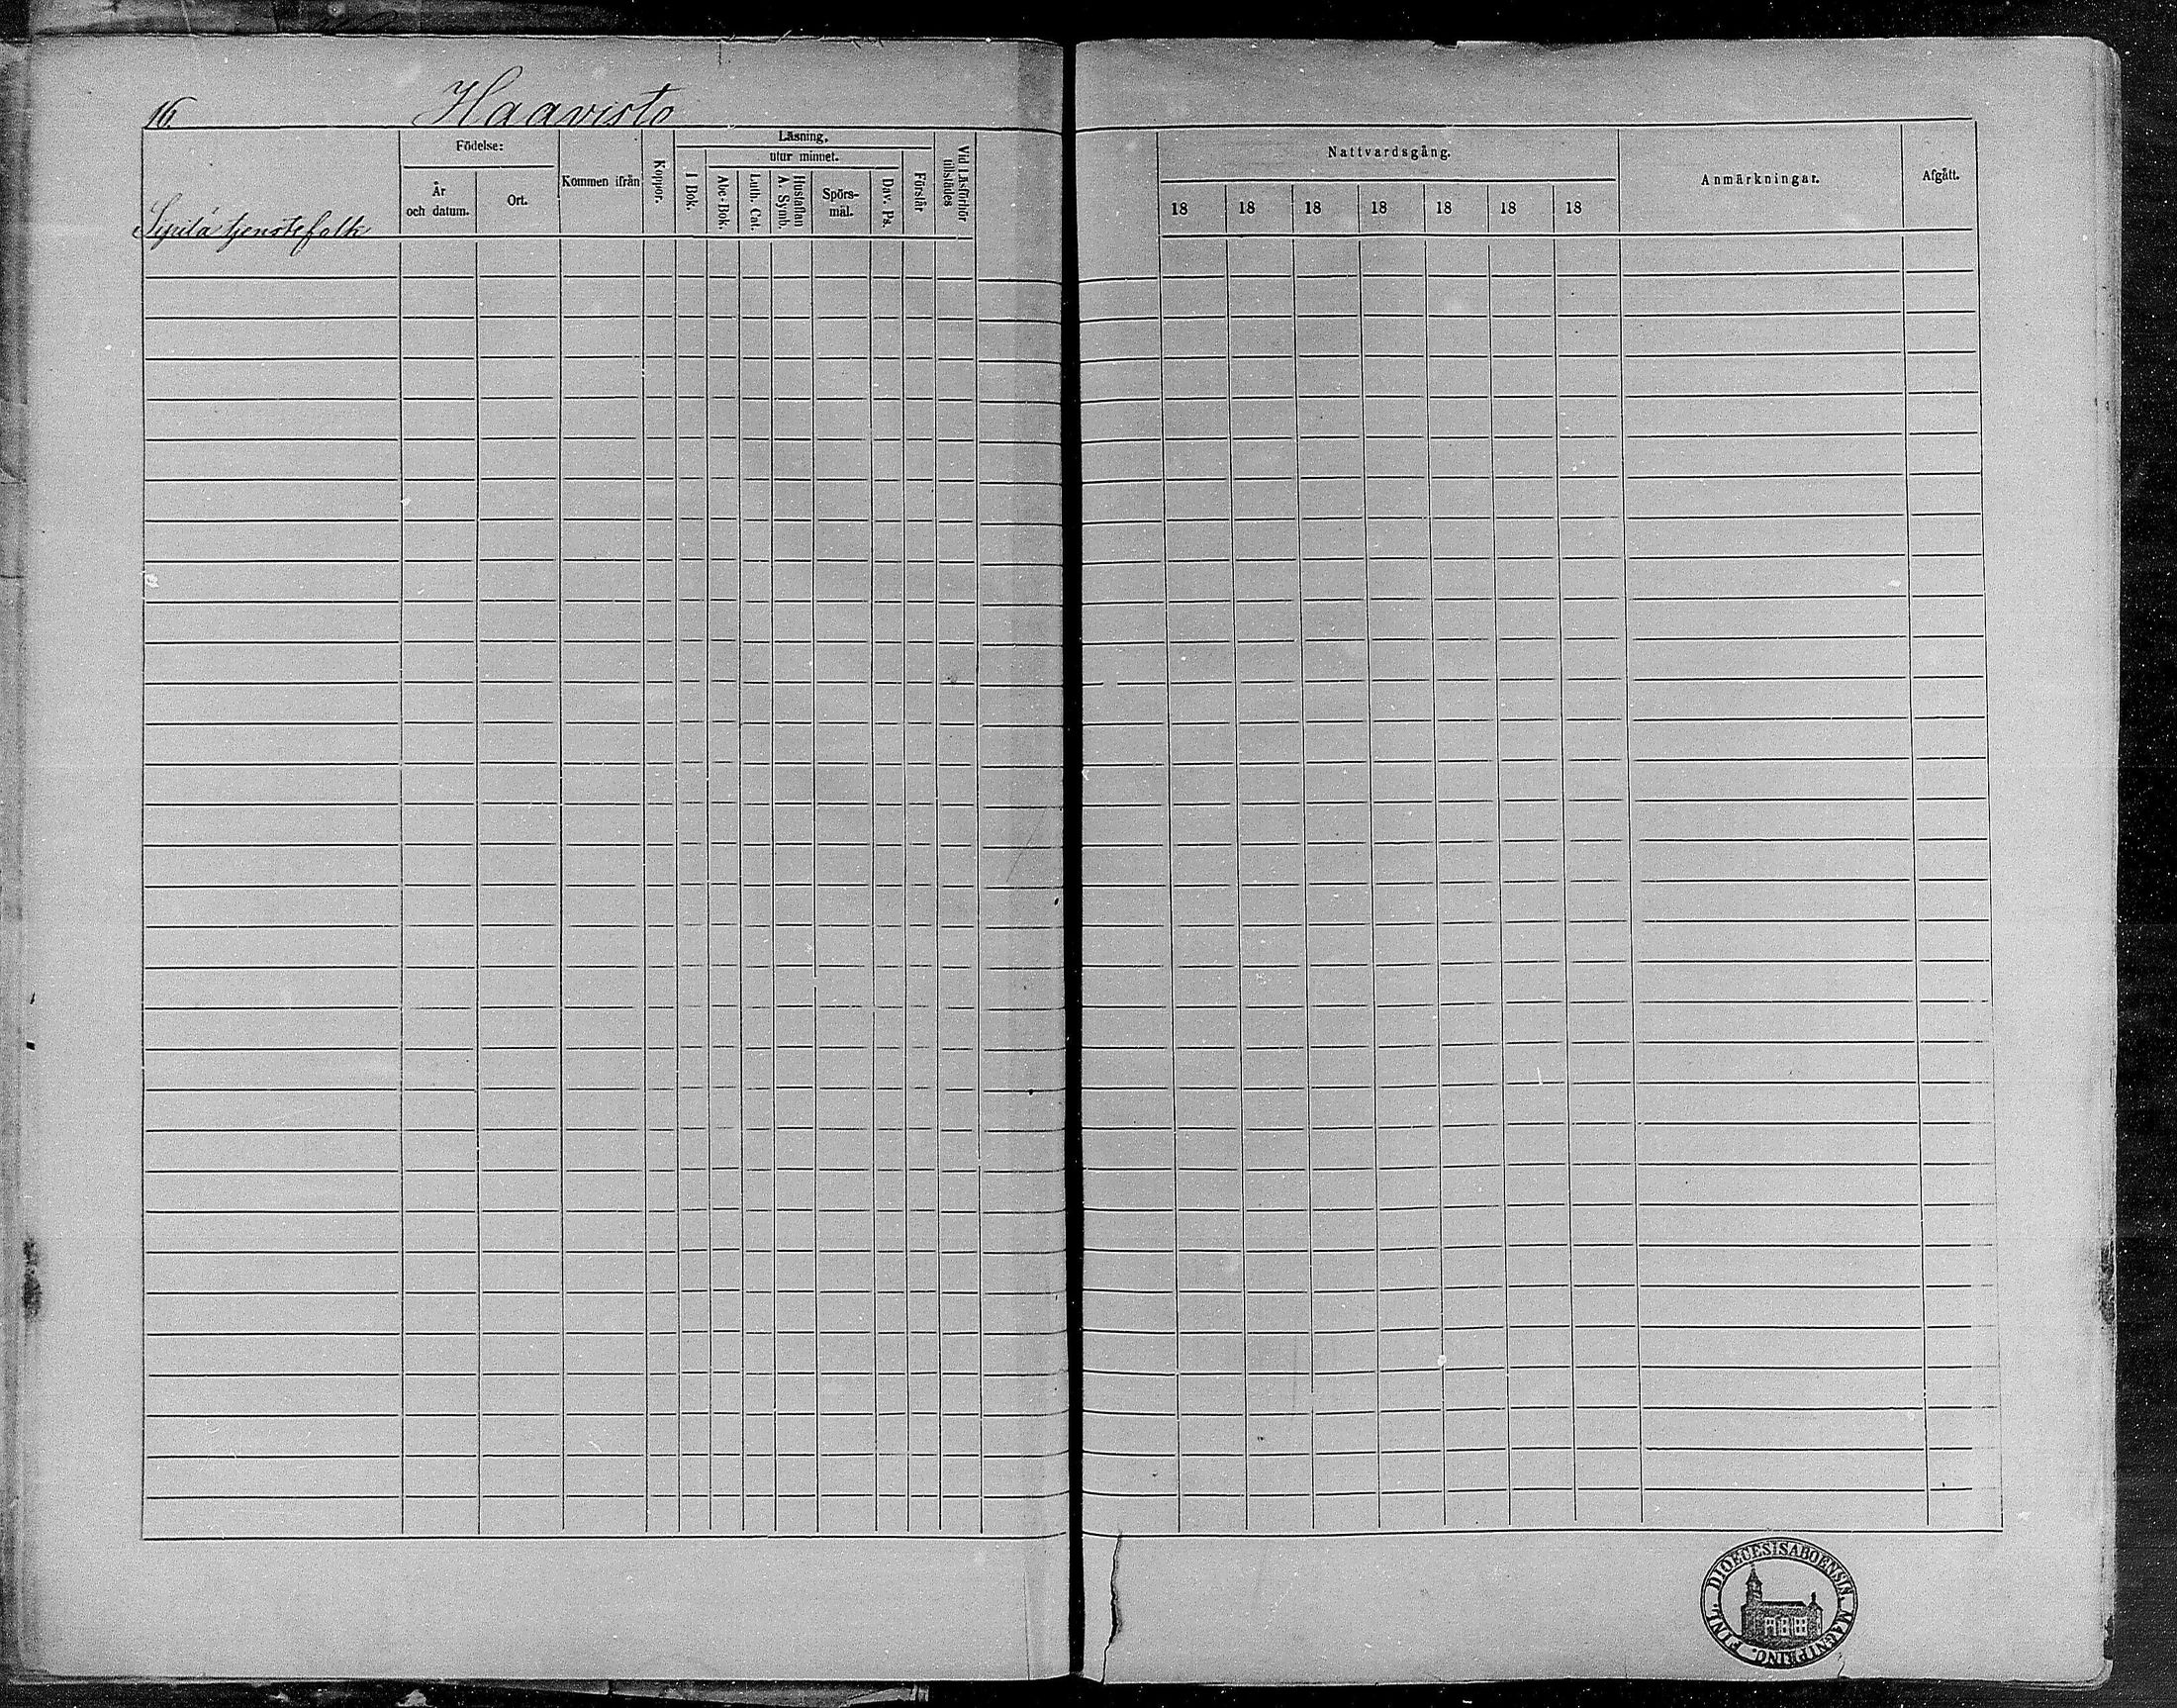 16.
Haavisto
Födelse:
År
och datum.
Ort.
Kommen ifrån
Koppor.
Läsning,
I Bok.
utur minnet.
Abc-Bok.
Luth. Cat.
Hustaflan
A. Symb.
Spörs-
mål.
Dav. Ps.
Förstår
Vid Läsförhör
tillstädes
Sipilä tjenstefolk
Nattvardsgång.
18 18 18 18 18 18 18
Anmärkningar.
Afgått.
DIOECESIS ABOENSIS. MAGNI PRINC. FINL.